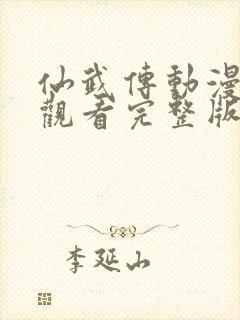 仙武傳動漫
觀看完整版
李延山